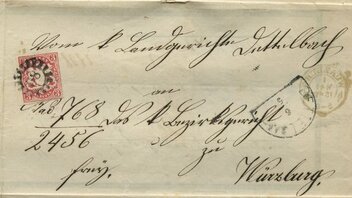 Vom k Landgerichte Dettelbach
an
Nad 768 Das k Bezirksgericht
2456 zu
frey. Würzburg.